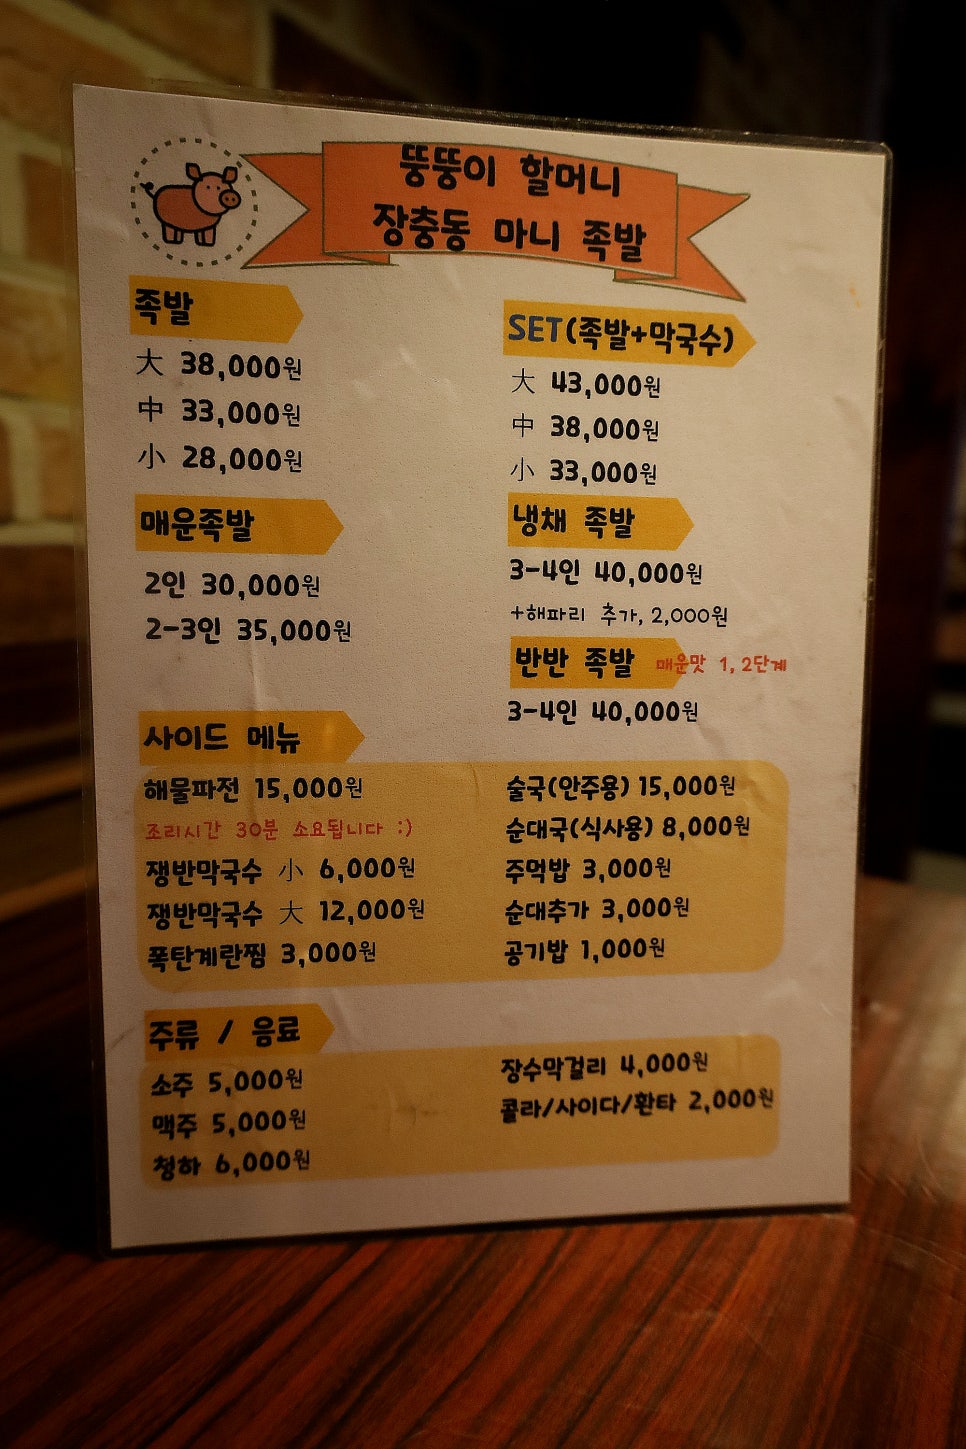 뚱뚱이 할머니
장충동 마니 족발
족발
大 38,000원
中 33,000원
小 28,000원
SET(족발+막국수)
大 43,000원
中 38,000원
小 33,000원
매운족발
2인 30,000원
2-3인 35,000원
냉채 족발
3-4인 40,000원
+해파리 추가, 2,000원
반반 족발 매운맛 1, 2단계
3-4인 40,000원
사이드 메뉴
해물파전 15,000원
조리시간 30분 소요됩니다 :)
쟁반막국수 小 6,000원
쟁반막국수 大 12,000원
폭탄계란찜 3,000원
술국(안주용) 15,000원
순대국(식사용) 8,000원
주먹밥 3,000원
순대추가 3,000원
공기밥 1,000원
주류 / 음료
소주 5,000원
맥주 5,000원
청하 6,000원
장수막걸리 4,000원
콜라/사이다/환타 2,000원